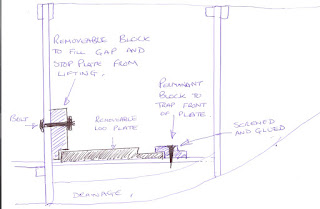 REMOVEABLE BLOCK
TO FILL GAP AND
STOP PLATE FROM
LIFTING.
BOLT
REMOVABLE
LOO PLATE
PERMANANT
BLOCK TO
TRAP FRONT
OF PLATE
SCREWED
AND GLUED
DRAINAGE.